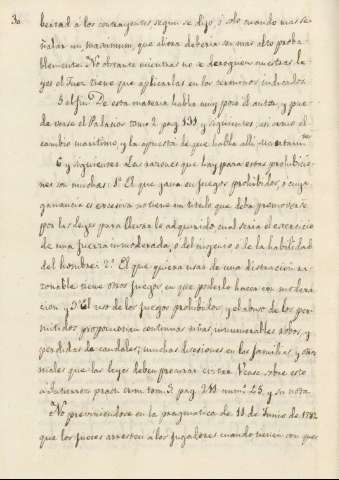 30
bertad á los contrayentes, segun se dijo, ó solo cuando mas se-
ñalar un maxsimum, que ahora deberia ser mas alto proba-
blemente. No obstante mientras no se deroguen nuestras le-
yes el Juez tiene que aplicarlas en los terminos indicados.
5 al fin. De esta materia habla muy poco el autor, y pue-
de verse el Palacios tomo 2 pag. 139 y siguientes, asi como el
cambio maritimo y la apuesta de que habla alli
6 y siguientes. Las razones que hay para estas prohibicio-
nes son muchas: 1ª El que gana en juegos prohibidos, o cuya
ganancia es excesiva no tiene un titulo que deba promoverse
por las leyes para llevar lo adquirido cual seria el ejercicio
de una fuerza inmoderada, o del ingenio o de la habilidad
del hombre: 2ª El que quiera usar de una distraccion ra-
zonable tiene otros juegos en que poderlo hacer con modera-
cion y 3ª El uso de los juegos prohibidos y el abuso de los per-
mitidos proporcionan continuas riñas, innumerables robos, y
perdidas de caudales; muchas disensiones en las familias, y otros
males que las leyes deben procurar evitar. Vease sobre esto
a Gutierrez pract. crim. tom. 3. pag. 212 num.º 25, y su nota.
No previniendose en la pragmatica de 11 de Junio de 1782
que los jueces arresten á los jugadores cuando tienen con que